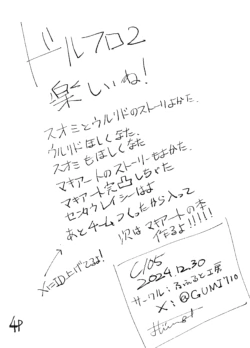 ドルフロ2
楽しいね!
スオミとウルリドのストーリーよかた.
ウルリドほしくなた.
スオミもほしくなた
マキアートのストーリーもよかた.
マキアート完凸しちゃた
センタウレイシーはよ
あとチームつくったから入って
XにID上げてるよ!
次はマキアートの本
作るよ!!!!!
C105
2024.12.30
サークル:ふふると工房
X:@GUMI710
4P